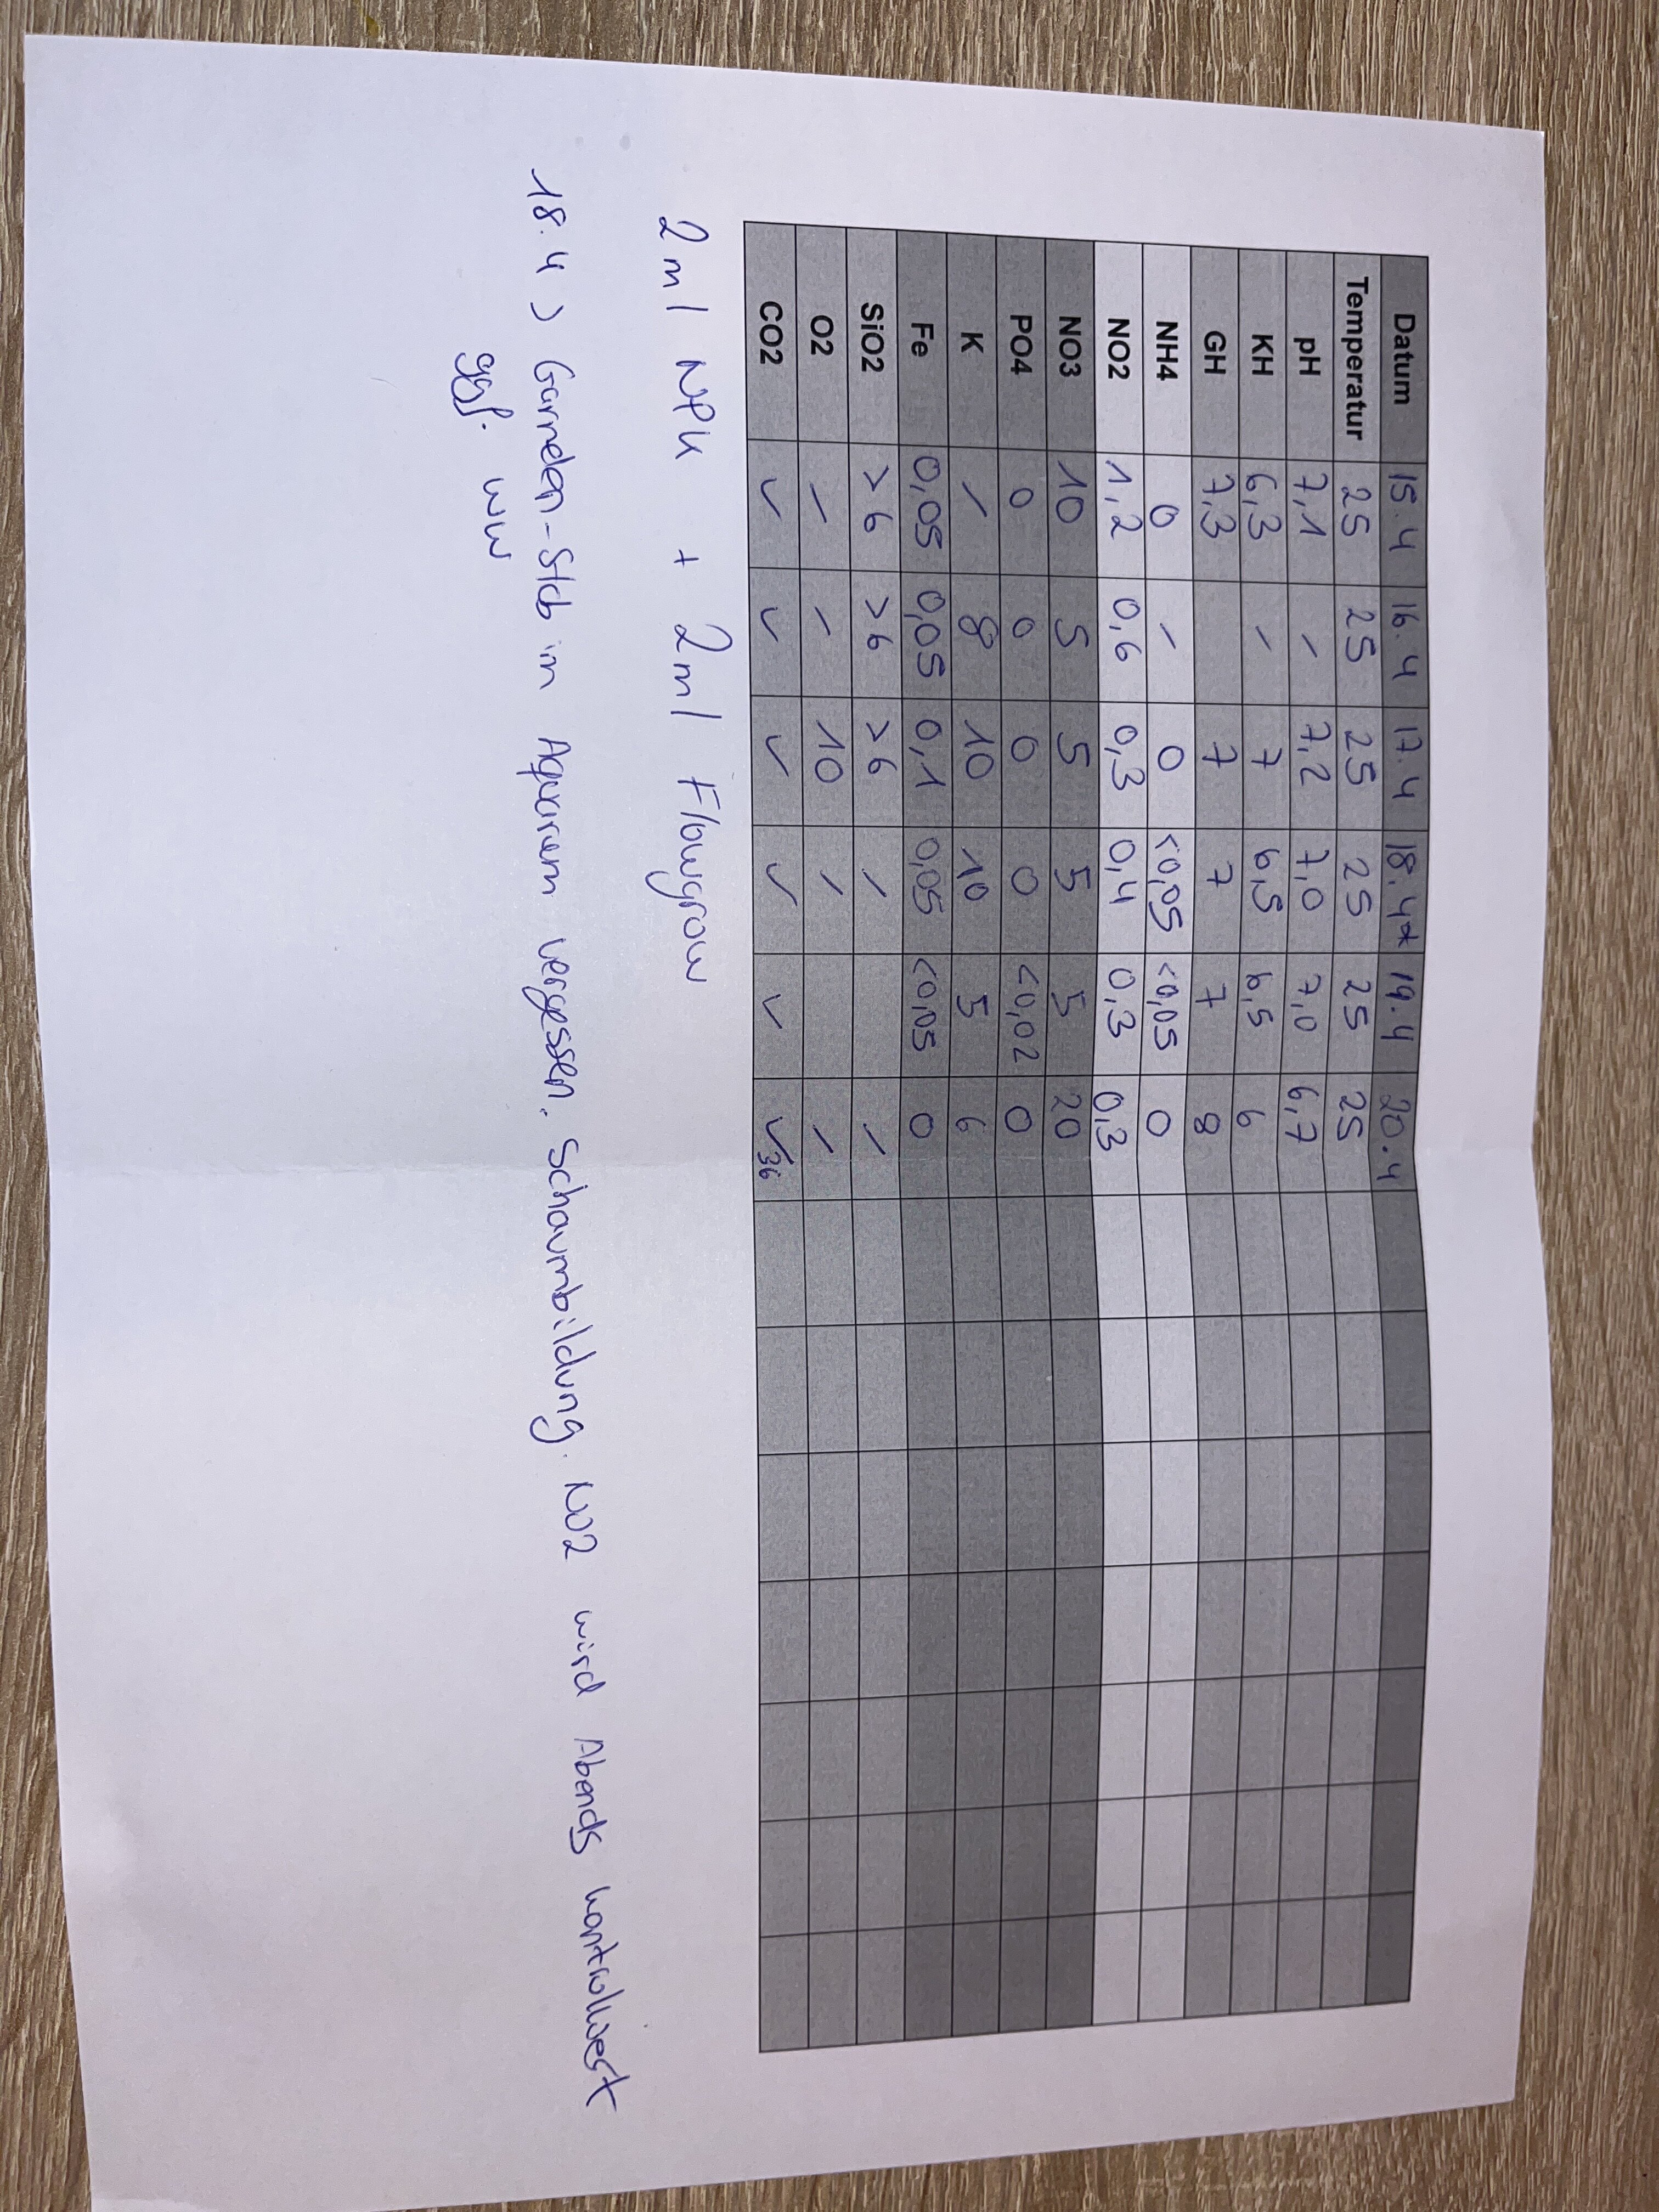 Datum 15.4 16.4 17.4 18.4* 19.4 20.4
Temperatur 25 25 25 25 25 25
pH 7,1 / 7,2 7,0 7,0 6,7
KH 6,3 / 7 6,5 6,5 6
GH 7,3 7 7 7 8
NH4 0 / 0 <0,05 <0,05 0
NO2 1,2 0,6 0,3 0,4 0,3 0,3
NO3 10 5 5 5 5 20
PO4 0 0 0 0 <0,02 0
K / 8 10 10 5 6
Fe 0,05 0,05 0,1 0,05 <0,05 0
SiO2 >6 >6 >6 / /
O2 / / 10 / /
CO2 ✓ ✓ ✓ ✓ ✓ ✓ 36
2ml NPK + 2ml Flowgrow
18.4 > Garnelen-Stab in Aquarium vergessen. Schaumbildung. NO2 wird Abends kontrolliert
ggf. WW